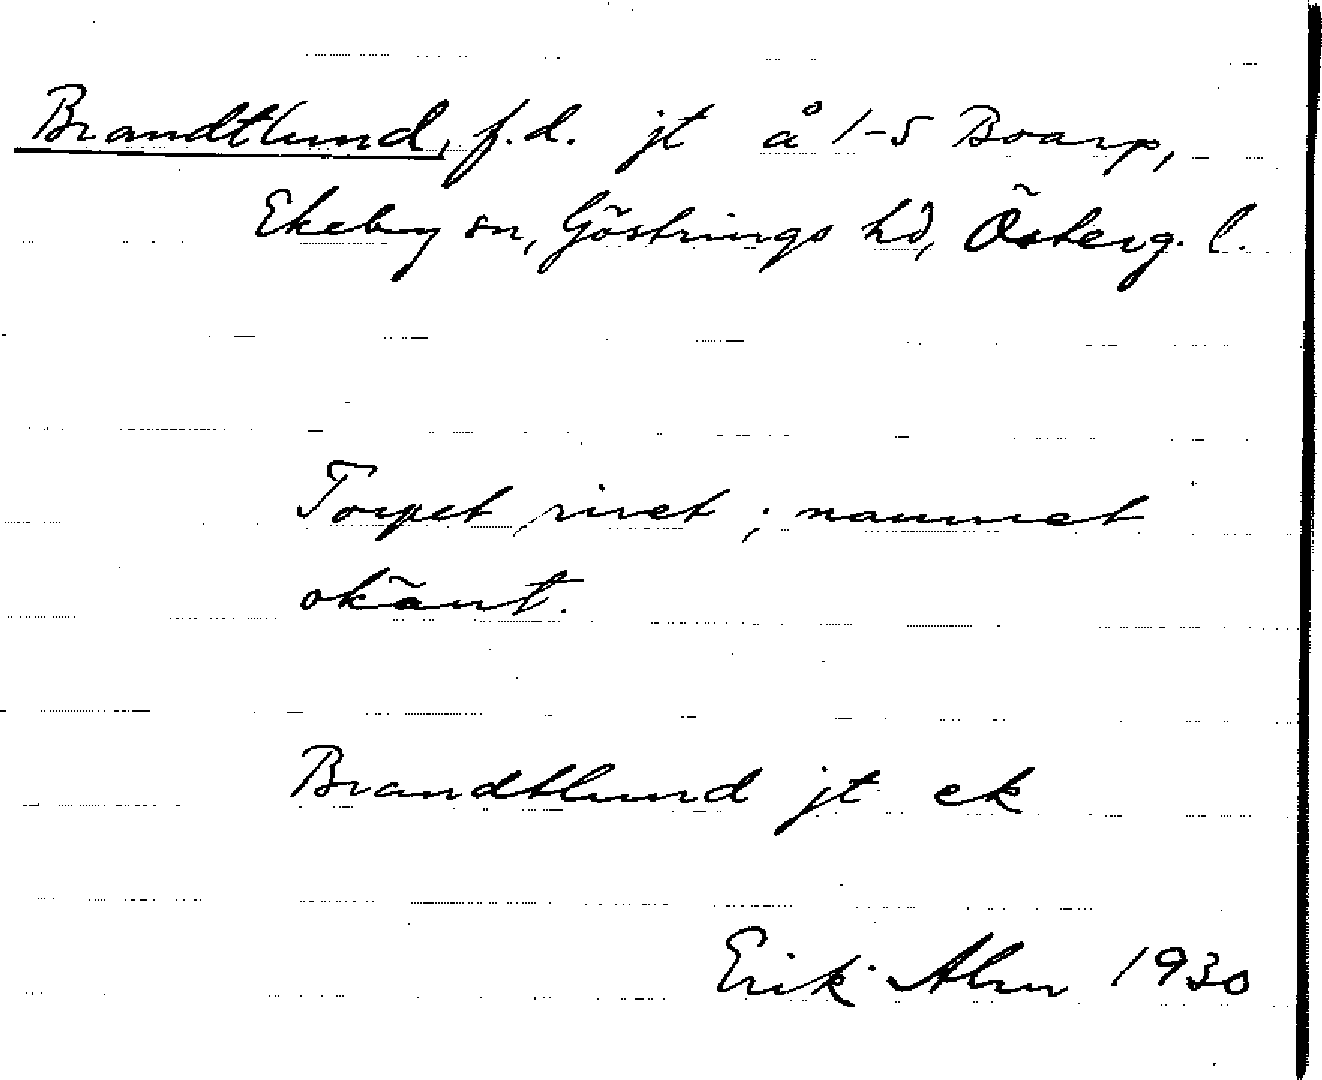 Brandtlund, f.d. jt å 1-5 Boarp,
Ekeby sn, Göstrings hd, Österg. l.
Torpet rivet ; namnet
okänt.
Brandtlund jt ek
Erik Alm 1930